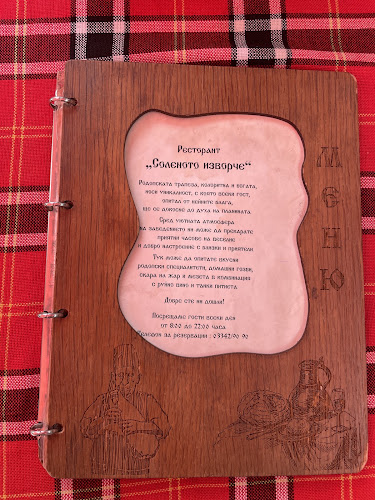 Ресторант
„Соленото изворче“
Родопската трапеза, колоритна и богата,
носи уникалност, с която всеки гост,
опитал от нейните блага,
ще се докосне до духа на планината.
Сред уютната атмосфера
на заведението ни може да прекарате
приятни часове на весели
и добро настроение с близки и приятели
Тук може да опитате вкусни
родопски специалитети, домашни гозби,
скара на жар и мезета в комбинация
с руйно вино и тежки питиета
Добре сте ни дошли!
Посрещаме гости всеки ден
от 8:00 до 22:00 часа
Телефон за резервации : 03342/90-90
МЕНЮ